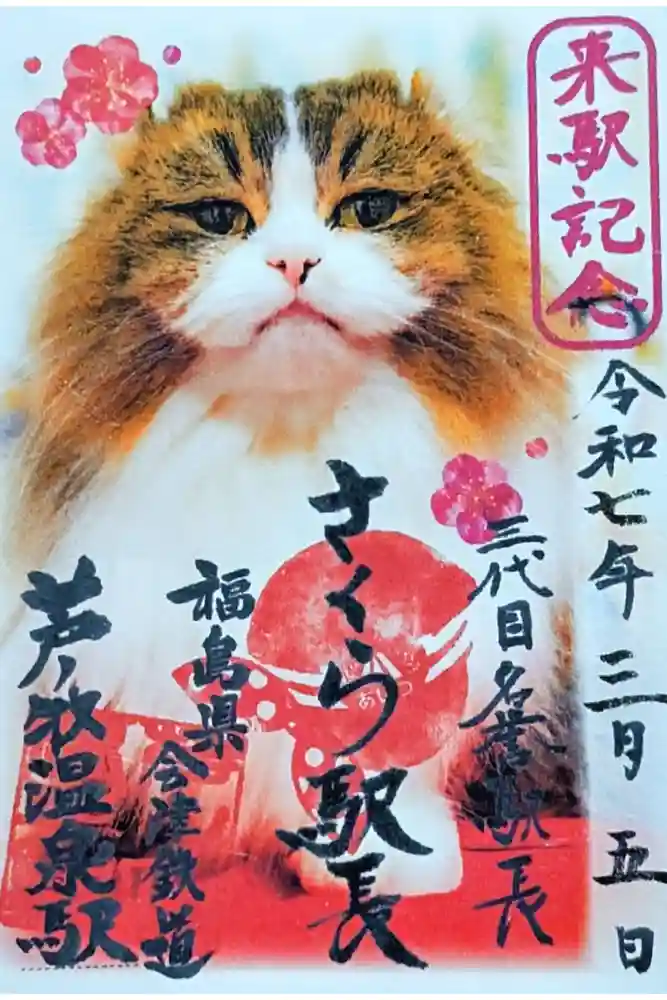 来駅記念
令和七年三月五日
三代目名誉駅長
さくら駅長
福島県
会津鉄道
芦ノ牧温泉駅